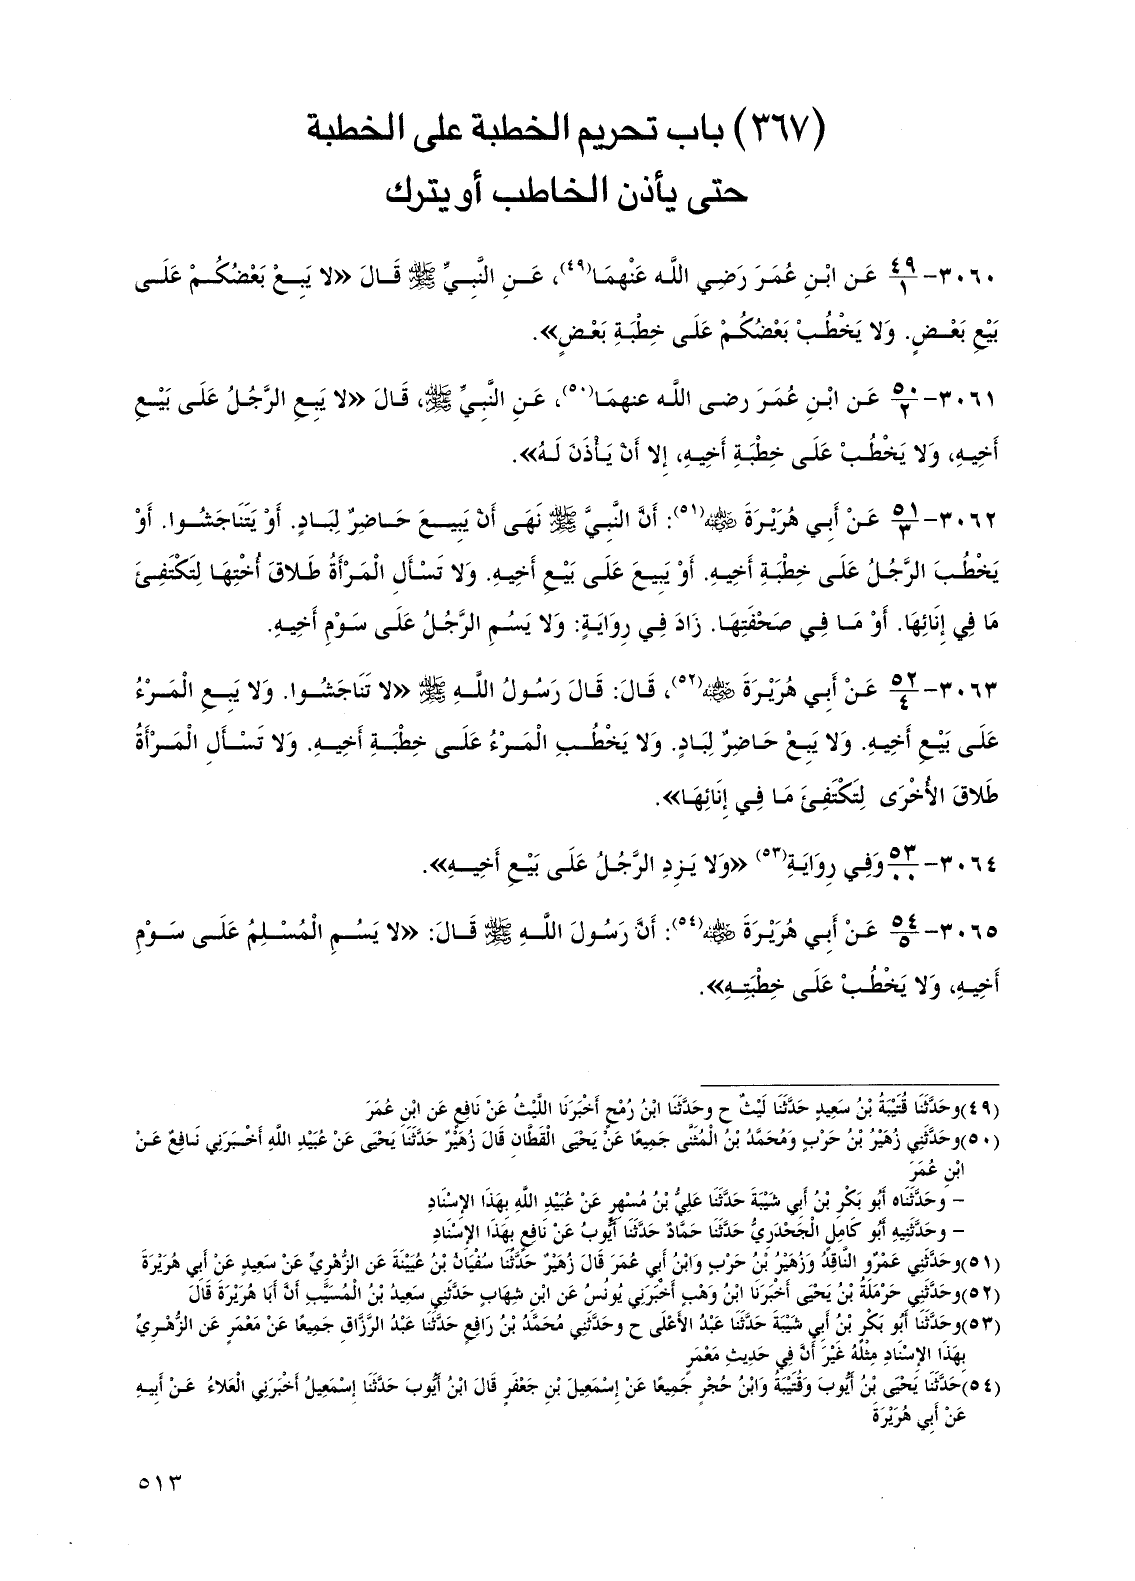 (٣٦٧) باب تحريم الخطبة على الخطبة
حتى يأذن الخاطب أو يترك
٣٠٦٠- ٤٩/١ عَن ابْنِ عُمَرَ رَضِي اللَّه عَنْهِمَا(٤٩)، عَنِ النَّبِيِّ ﷺ قَالَ «لا يَبِعْ بَعْضُكُمْ عَلَى
بَيْعِ بَعْضٍ. وَلا يَخْطُبْ بَعْضُكُمْ عَلَى خِطْبَةِ بَعْضٍ».
٣٠٦١- ٥٠/٢ عَن ابْنِ عُمَرَ رضى اللَّه عنهمَا(٥٠)، عَنِ النَّبِيِّ ﷺ، قَالَ «لا يَبِعِ الرَّجُلُ عَلَى بَيْعِ
أَخِيهِ، وَلا يَخْطُبْ عَلَى خِطْبَةِ أَخِيهِ، إِلا أَنْ يَأْذَنَ لَهُ».
٣٠٦٢- ٥١/٣ عَنْ أَبِي هُرَيْرَةَ ﷺ(٥١): أَنَّ النَّبِيَّ ﷺ نَهَى أَنْ يَبِيعَ حَاضِرٌ لِبَادٍ. أَوْ يَتَنَاجَشُوا. أَوْ
يَخْطُبَ الرَّجُلُ عَلَى خِطْبَةِ أَخِيهِ. أَوْ يَبِيعَ عَلَى بَيْعِ أَخِيهِ. وَلا تَسْأَلِ الْمَرْأَةُ طَلاقَ أُخْتِهَا لِتَكْتَفِئَ
مَا فِي إِنَائِهَا. أَوْ مَا فِي صَحْفَتِهَا. زَادَ فِي رِوَايَةٍ: وَلا يَسُمِ الرَّجُلُ عَلَى سَوْمِ أَخِيهِ.
٣٠٦٣- ٥٢/٤ عَنْ أَبِي هُرَيْرَةَ ﷺ(٥٢)، قَالَ: قَالَ رَسُولُ اللَّهِ ﷺ «لا تَنَاجَشُوا. وَلا يَبِعِ الْمَرْءُ
عَلَى بَيْعِ أَخِيهِ. وَلا يَبِعْ حَاضِرٌ لِبَادٍ. وَلا يَخْطُبِ الْمَرْءُ عَلَى خِطْبَةِ أَخِيهِ. وَلا تَسْأَلِ الْمَرْأَةُ
طَلاقَ الأُخْرَى لِتَكْتَفِئَ مَا فِي إِنَائِهَا».
٣٠٦٤- ٥٣/.. وَفِي رِوَايَةٍ(٥٣) «وَلا يَزِدِ الرَّجُلُ عَلَى بَيْعِ أَخِيهِ».
٣٠٦٥- ٥٤/٥ عَنْ أَبِي هُرَيْرَةَ ﷺ(٥٤): أَنَّ رَسُولَ اللَّهِ ﷺ قَالَ: «لا يَسُمِ الْمُسْلِمُ عَلَى سَوْمِ
أَخِيهِ، وَلا يَخْطُبْ عَلَى خِطْبَتِهِ».
(٤٩)وحَدَّثَنَا قُتَيْبَةُ بْنُ سَعِيدٍ حَدَّثَنَا لَيْثٌ ح وحَدَّثَنَا ابْنُ رُمْحٍ أَخْبَرَنَا اللَّيْثُ عَنْ نَافِعٍ عَن ابْنِ عُمَرَ
(٥٠)وحَدَّثَنِي زُهَيْرُ بْنُ حَرْبٍ وَمُحَمَّدُ بْنُ الْمُثَنَّى جَمِيعًا عَنْ يَحْيَى الْقَطَّانِ قَالَ زُهَيْرٌ حَدَّثَنَا يَحْيَى عَنْ عُبَيْدِ اللَّهِ أَخْبَرَنِي نَافِعٌ عَنْ
ابْنِ عُمَرَ
– وحَدَّثَنَاه أَبُو بَكْرِ بْنُ أَبِي شَيْبَةَ حَدَّثَنَا عَلِيُّ بْنُ مُسْهِرٍ عَنْ عُبَيْدِ اللَّهِ بِهَذَا الإِسْنَادِ
– وحَدَّثَنِيهِ أَبُو كَامِلٍ الْجَحْدَرِيُّ حَدَّثَنَا حَمَّادٌ حَدَّثَنَا أَيُّوبُ عَنْ نَافِعٍ بِهَذَا الإِسْنَادِ
(٥١)وحَدَّثَنِي عَمْرٌو النَّاقِدُ وَزُهَيْرُ بْنُ حَرْبٍ وَابْنُ أَبِي عُمَرَ قَالَ زُهَيْرٌ حَدَّثَنَا سُفْيَانُ بْنُ عُيَيْنَةَ عَن الزُّهْرِيِّ عَنْ سَعِيدٍ عَنْ أَبِي هُرَيْرَةَ
(٥٢)وحَدَّثَنِي حَرْمَلَةُ بْنُ يَحْيَى أَخْبَرَنَا ابْنُ وَهْبٍ أَخْبَرَنِي يُونُسُ عَن ابْنِ شِهَابٍ حَدَّثَنِي سَعِيدُ بْنُ الْمُسَيَّبِ أَنَّ أَبَا هُرَيْرَةَ قَالَ
(٥٣)وحَدَّثَنَا أَبُو بَكْرِ بْنُ أَبِي شَيْبَةَ حَدَّثَنَا عَبْدُ الأَعْلَى ح وحَدَّثَنِي مُحَمَّدُ بْنُ رَافِعٍ حَدَّثَنَا عَبْدُ الرَّزَّاقِ جَمِيعًا عَنْ مَعْمَرٍ عَن الزُّهْرِيِّ
بِهَذَا الإِسْنَادِ مِثْلَهُ غَيْرَ أَنَّ فِي حَدِيثِ مَعْمَرٍ
(٥٤)حَدَّثَنَا يَحْيَى بْنُ أَيُّوبَ وَقُتَيْبَةُ وَابْنُ حُجْرٍ جَمِيعًا عَنْ إِسْمَعِيلَ بْنِ جَعْفَرٍ قَالَ ابْنُ أَيُّوبَ حَدَّثَنَا إِسْمَعِيلُ أَخْبَرَنِي الْعَلاءُ عَنْ أَبِيهِ
عَنْ أَبِي هُرَيْرَةَ
٥١٣